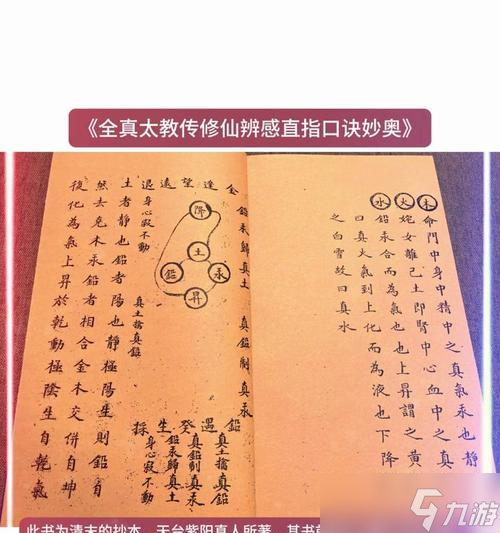 《全真太教传修仙辨感直指口诀妙奥》
木火水
命門中身中精中之真氣汞也靜
姹女離己土即腎中心血中之真
鉛汞合而為氣也上昇謂之黃
曰真火氣到上化而為液也下降
之白雪故曰真水
金逢望遠退
鉛汞歸真土 真鉛制真汞
降
土
鉛
汞
昇
真土擒真鉛
身心寂不動
鉛遇癸生採
真土擒真鉛
真鉛制真汞
鉛汞歸真土
身心寂不動
土者靜也鉛者陽也靜極陽生則鉛自
然去克木汞鉛者相合金木交併自坤
復化為氣上昇於乾動極陰生自乾氣
此书为清末的抄本，天台紫阳真人所著，其书
九游